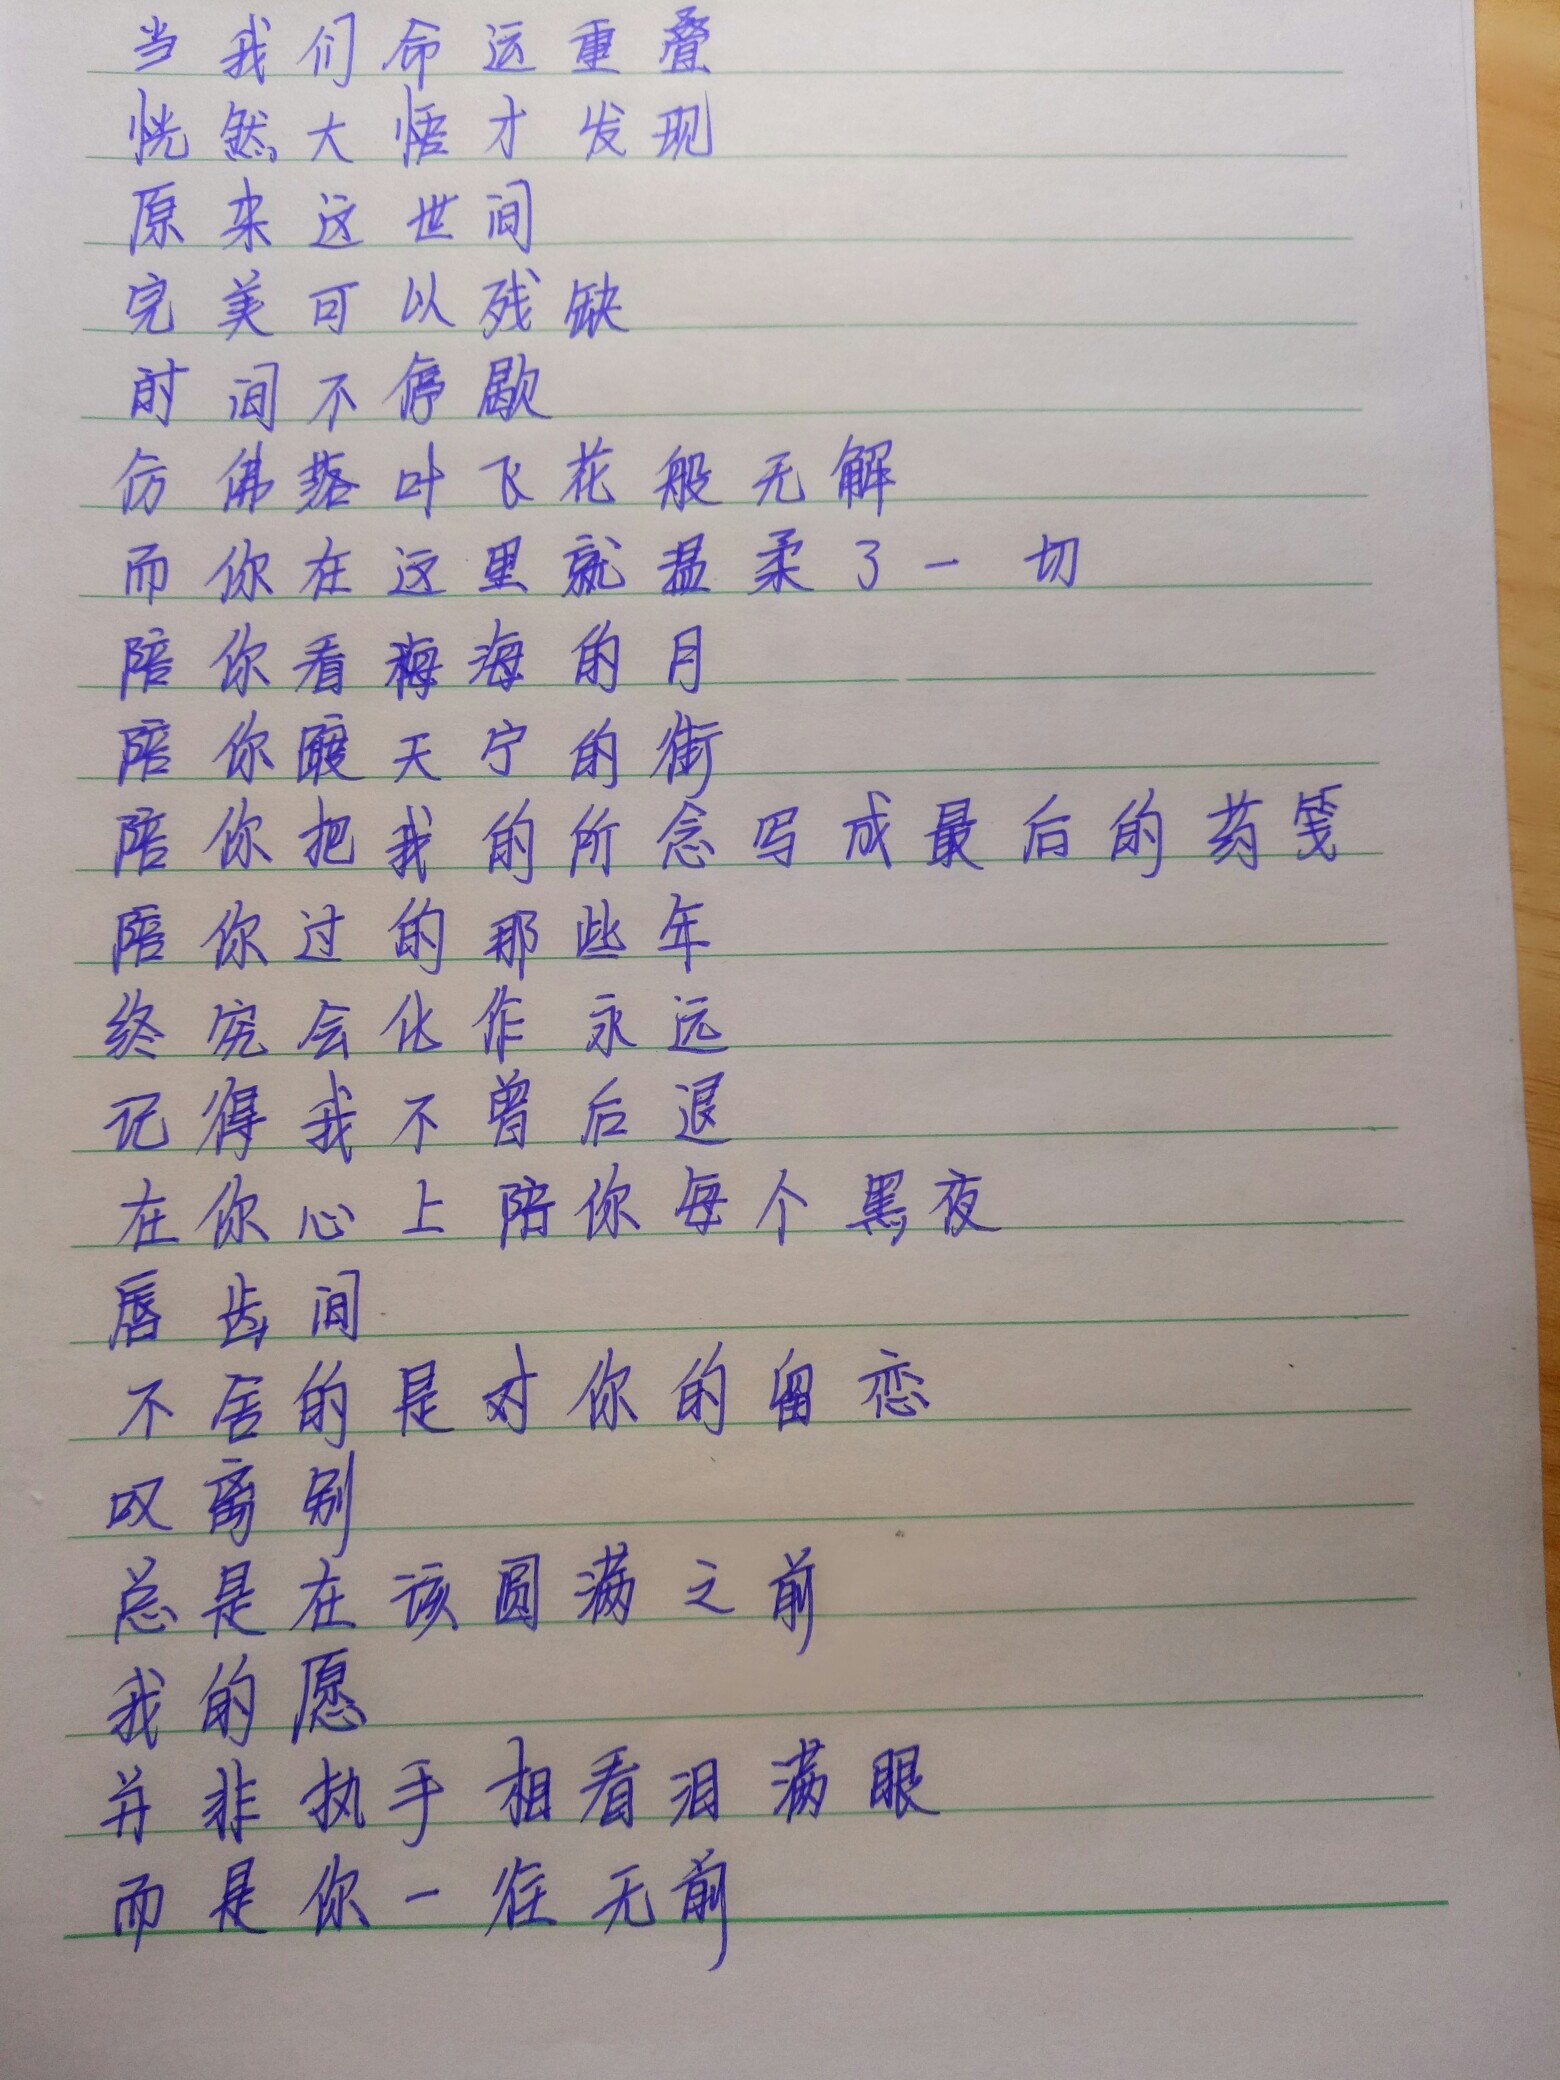 当我们命运重叠
恍然大悟才发现
原来这世间
完美可以残缺
时间不停歇
仿佛落叶飞花般无解
而你在这里就温柔了一切
陪你看梅海的月
陪你暖天宁的街
陪你把我的所念写成最后的药笺
陪你过的那些年
终究会化作永远
记得我不曾后退
在你心上陪你每个黑夜
唇齿间
不舍的是对你的留恋
叹离别
总是在该圆满之前
我的愿
并非执手相看泪满眼
而是你一往无前